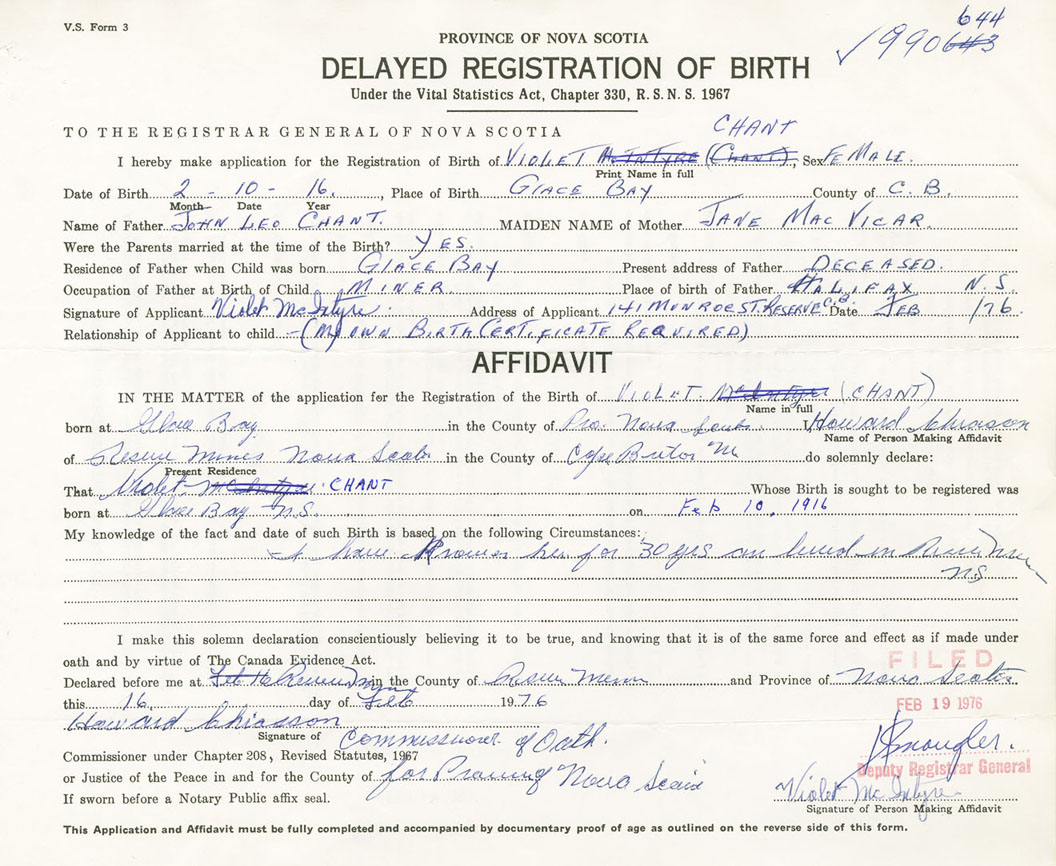 V.S. Form 3
644
✓990643
PROVINCE OF NOVA SCOTIA
DELAYED REGISTRATION OF BIRTH
Under the Vital Statistics Act, Chapter 330, R. S. N. S. 1967
TO THE REGISTRAR GENERAL OF NOVA SCOTIA
CHANT
I hereby make application for the Registration of Birth of VIOLET McINTYRE (CHANT), Sex FEMALE.
Print Name in full
Date of Birth 2 - 10 - 16. , Place of Birth GLACE BAY County of C. B.
Month Date Year
Name of Father JOHN LEO CHANT. MAIDEN NAME of Mother JANE MAC VICAR.
Were the Parents married at the time of the Birth? YES.
Residence of Father when Child was born GLACE BAY Present address of Father DECEASED.
Occupation of Father at Birth of Child MINER. Place of birth of Father HALIFAX N. S.
Signature of Applicant Violet McIntyre. Address of Applicant 141 MUNROE ST. RESERVE C.B. Date FEB /76
Relationship of Applicant to child - (MY OWN BIRTH CERTIFICATE REQUIRED)
AFFIDAVIT
IN THE MATTER of the application for the Registration of the Birth of VIOLET McIntyre (CHANT)
Name in full
born at Glace Bay in the County of Pro. Nova Scotia I, Howard Chiasson
Name of Person Making Affidavit
of Reserve Mines Nova Scotia in the County of Cape Breton do solemnly declare:
Present Residence
That Violet McIntyre CHANT Whose Birth is sought to be registered was
born at Glace Bay N.S. on Feb 10, 1916
My knowledge of the fact and date of such Birth is based on the following Circumstances:
I have known her for 30 yrs lived in Reserve Mines
N.S
I make this solemn declaration conscientiously believing it to be true, and knowing that it is of the same force and effect as if made under
oath and by virtue of The Canada Evidence Act.
FILED
Declared before me at Reserve Mines in the County of Reserve Mines and Province of Nova Scotia
this 16 day of Feb 1976
FEB 19 1976
Howard Chiasson
Signature of Commissioner of Oath.
Commissioner under Chapter 208, Revised Statutes, 1967
Deputy Registrar General
or Justice of the Peace in and for the County of for Nova Scotia
Violet McIntyre
If sworn before a Notary Public affix seal.
Signature of Person Making Affidavit
This Application and Affidavit must be fully completed and accompanied by documentary proof of age as outlined on the reverse side of this form.